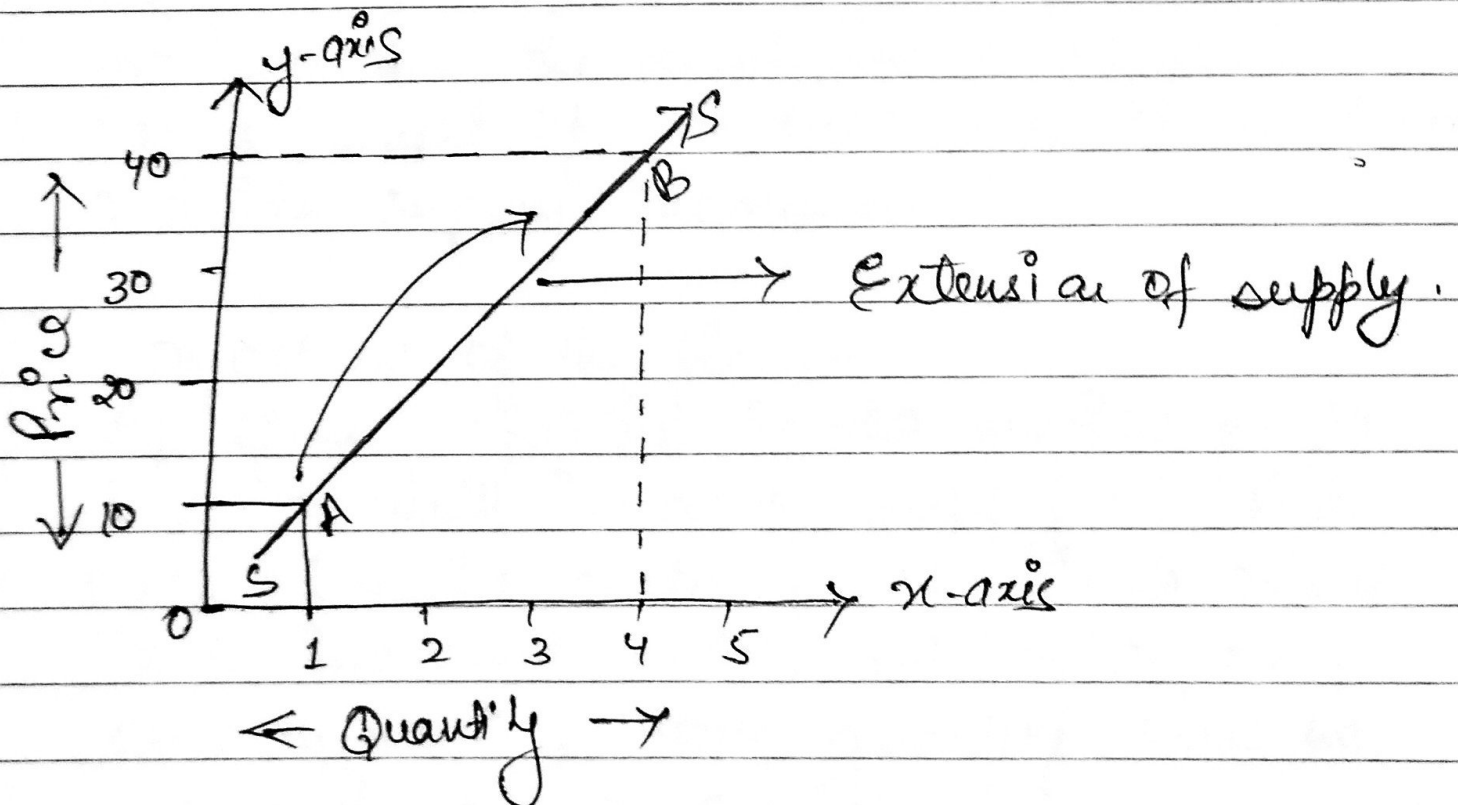 y-axis
S
40
B
30
Extension of supply.
Price
20
10
A
S
0
x-axis
1 2 3 4 5
← Quantity →